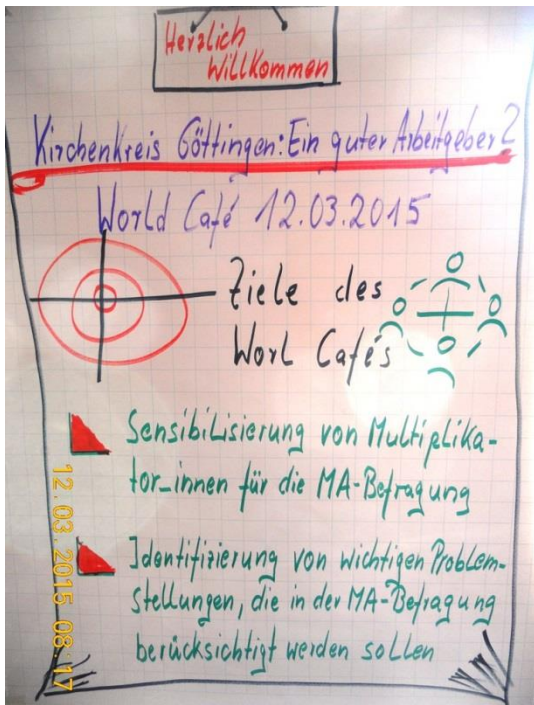 Herzlich
Willkommen
Kirchenkreis Göttingen: Ein guter Arbeitgeber?
World Café 12.03.2015
Ziele des
Worl Cafés
Sensibilisierung von Multiplika-
tor_innen für die MA-Befragung
Identifizierung von wichtigen Problem-
stellungen, die in der MA-Befragung
berücksichtigt werden sollen
12.03.2015 08:17